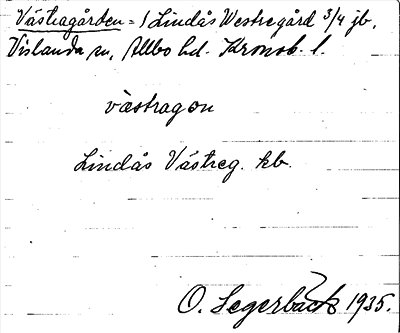 Västragården = / Lindås Westregård 3/4 jb.
Vislanda sn, Allbo hd. Kronob. l.
västragon
Lindås Västreg. kb.
O. Segerbäck 1935.